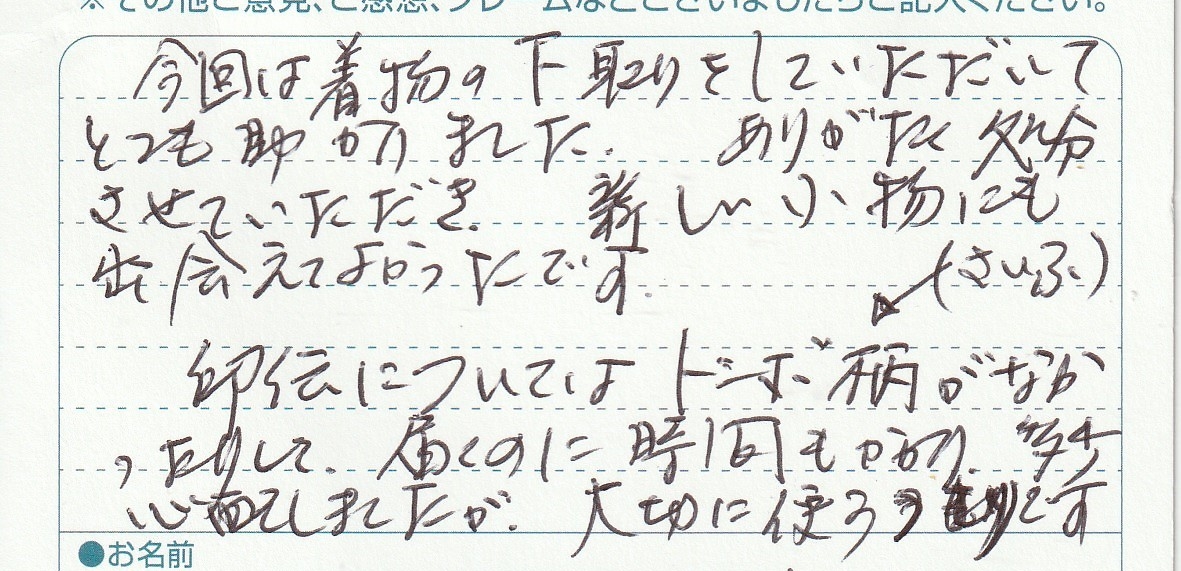 ※その他ご意見、ご感想、クレームなどございましたらご記入ください。
今回は着物の下取りをしていただいて
とても助かりました。ありがたく処分
させていただき、新しい小物にも
出会えてよかったです。
(さいふ)
印伝についてはトンボ柄がなか
ったりして、届くのに時間もかかり、多少
心配しましたが、大切に使おうです
●お名前